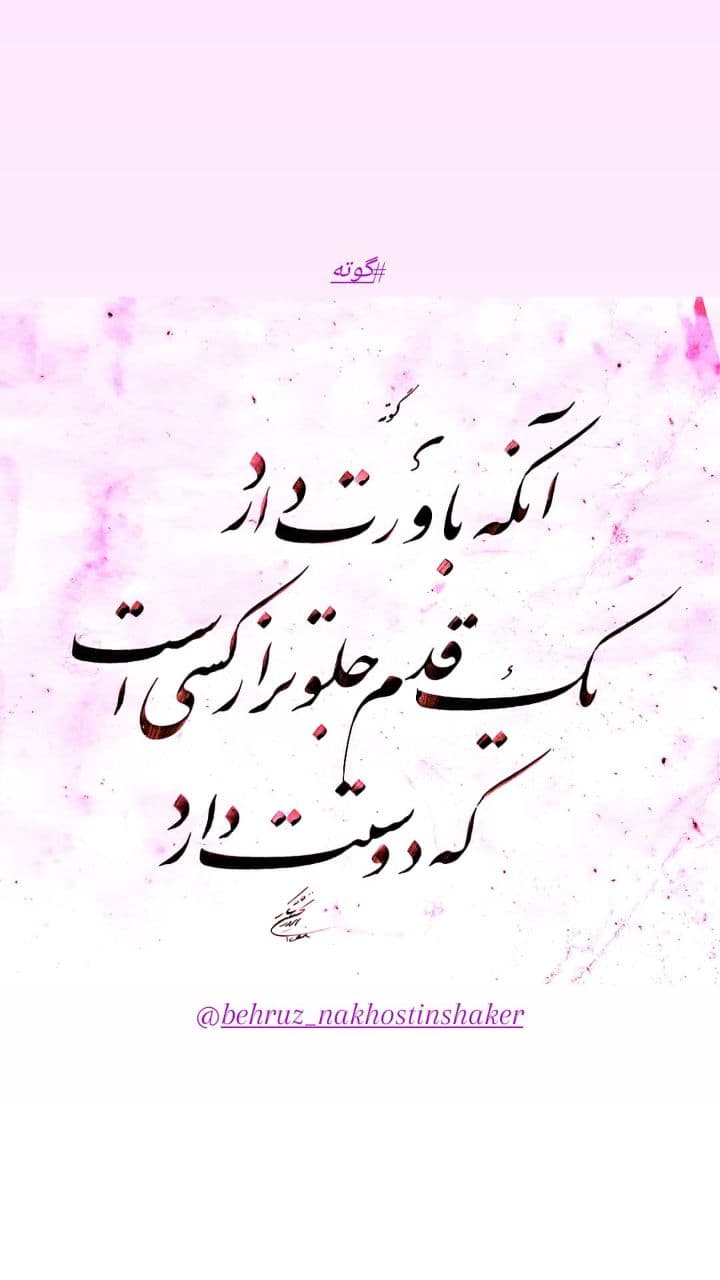 #گوته
گوته
آنکه باورت دارد
یک قدم جلوتر از کسی است
که دوستت دارد
@behruz_nakhostinshaker